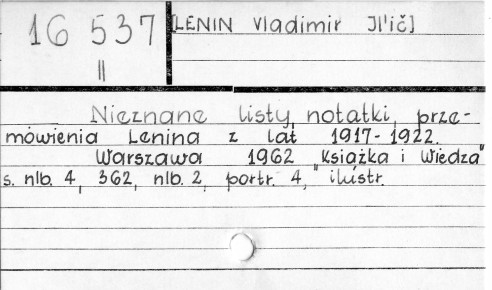 16 537
II
[LENIN Vladimir Il'ič]
Nieznane listy, notatki, prze-
mówienia Lenina z lat 1917-1922.
Warszawa 1962 "Książka i Wiedza"
s. nlb. 4, 362, nlb. 2, portr. 4, ilustr.